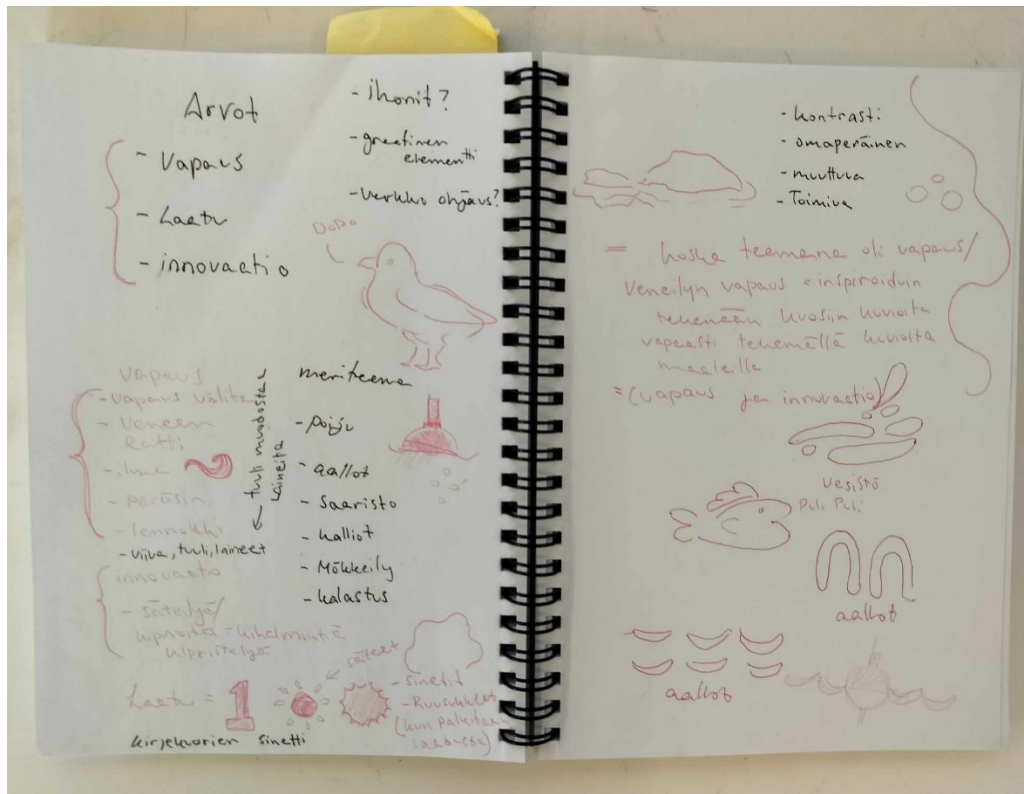 Arvot
- Vapaus
- Laatu
- innovaatio
- ihonit?
- graafinen
elementti
- verkko ohjaus?
vapaus
- vapaus valita
- veneen
ratti
- ilma
- peräsin
- lennokki
- viiva, tuuli, laineet
← tuuli muodostaa
laineita
innovaatio
- säteilyä/
kipristelyä
Laatu = 1
säteet
- sinetit
- Ruusukkeet
(kun palkitaan
laadusta)
kirjekuorien sinetti
meriteema
- poiju
- aallot
- Saaristo
- kalliot
- Mökkeily
- kalastus
- kontrasti
- omaperäinen
- muuttuva
- Toimiva
= koska teemana oli vapaus/
veneilyn vapaus = inspiroiduin
tekemään kuosiin kuvioita
vapaasti tekemällä kuvioita
maaleilla
= (vapaus ja innovaatio)
vesistö
Puli Puli
aallot
aallot